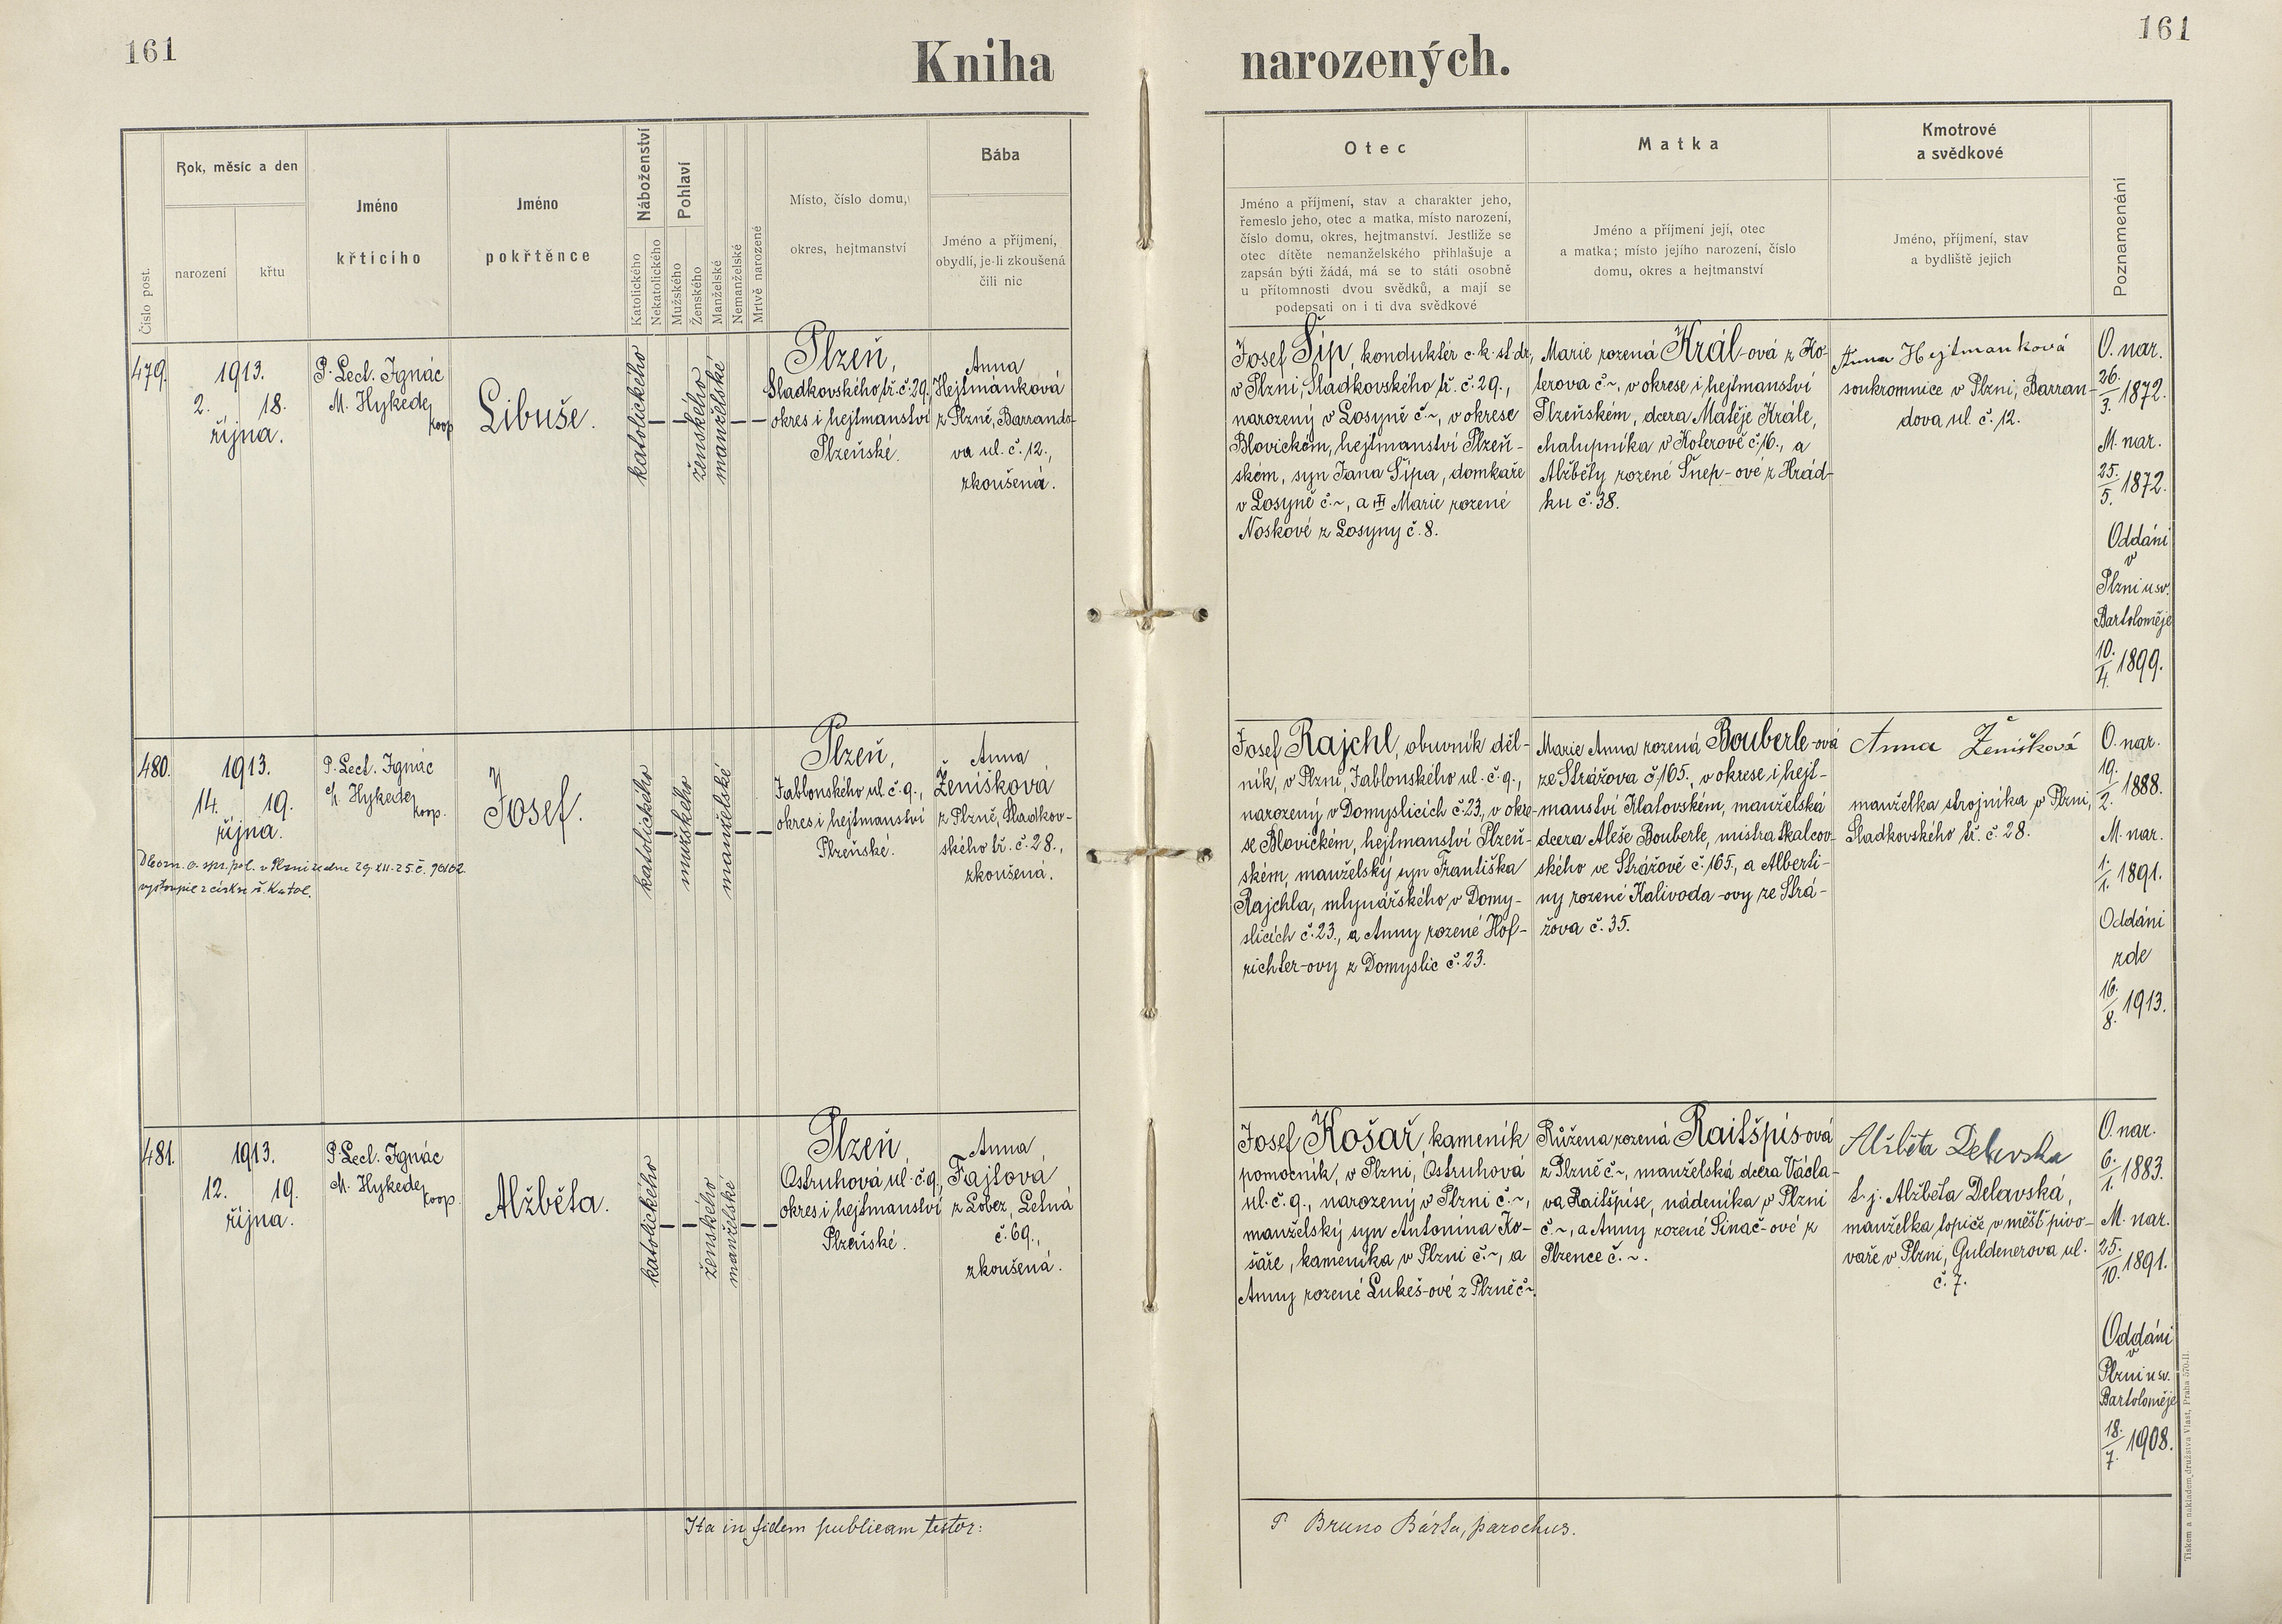 161
Kniha narozených.
161
Číslo post.
Rok, měsíc a den
narození
křtu
Jméno
křtícího
Jméno
pokřtěnce
Náboženství
Katolického
Nekatolického
Pohlaví
Mužského
Ženského
Manželské
Nemanželské
Mrtvě narozené
Místo, číslo domu,
okres, hejtmanství
Bába
Jméno a příjmení,
obydlí, je-li zkoušená
čili nic
Otec
Jméno a příjmení, stav a charakter jeho,
řemeslo jeho, otec a matka, místo narození,
číslo domu, okres, hejtmanství. Jestliže se
otec dítěte nemanželského přihlašuje a
zapsán býti žádá, má se to státi osobně
u přítomnosti dvou svědků, a mají se
podepsati on i ti dva svědkové
Matka
Jméno a příjmení její, otec
a matka; místo jejího narození, číslo
domu, okres a hejtmanství
Kmotrové
a svědkové
Jméno, příjmení, stav
a bydliště jejich
Poznamenání
479.
1913.
2. 18.
října.
P. Lect. Ignác
M. Hykede,
koop
Libuše.
katolického
ženského
manželské
Plzeň,
Sladkovského tř. č. 29.,
okres i hejtmanství
Plzeňské.
Anna
Hejtmánková
z Plzně, Barrando-
va ul. č. 12.,
zkoušená.
Josef Šíp, konduktér c. k. st. dr.,
v Plzni, Sladkovského tř. č. 29.,
narozený v Losyně č. ~, v okrese
Blovickém, hejtmanství Plzeň-
ském, syn Jana Šípa, domkaře
v Losyně č. ~, a Marie rozené
Noskové z Losyny č. 8.
Marie rozená Král-ová z Ko-
terova č ~, v okrese i hejtmanství
Plzeňském, dcera Matěje Krále,
chalupníka v Koterově č. 16., a
Alžběty rozené Šnep-ové z Hrád-
ku č. 38.
Anna Hejtmanková
soukromnice v Plzni, Barran-
dova ul. č. 12.
O. nar.
26./3. 1872.
M. nar.
25./5. 1872.
Oddáni
v
Plzni u sv.
Bartoloměje
10./4. 1899.
480.
1913.
14. 19.
října.
P. Lect. Ignác
M. Hykede,
koop.
Josef.
katolického
mužského
manželské
Plzeň,
Jablonského ul. č. 9.,
okres i hejtmanství
Plzeňské.
Anna
Ženíšková
z Plzně, Sladkov-
ského tř. č. 28.,
zkoušená.
Dle ozn. o. spr. pol. v Plzni ze dne 29. XII. 25. č.
vystoupil z církve ř. katol.
Josef Rajchl, obuvník děl-
ník, v Plzni, Jablonského ul. č. 9.,
narozený v Domyslicích č. 23., v okre-
se Blovickém, hejtmanství Plzeň-
ském, manželský syn Františka
Rajchla, mlynářského v Domy-
slicích č. 23., a Anny rozené Hof-
richter-ovy z Domyslic č. 23.
Marie Anna rozená Bouberle-ová
ze Strážova č 165., v okrese i hejt-
manství Klatovském, manželská
dcera Aleše Bouberle, mistra tkalcov-
ského ve Strážově č. 165., a Alberti-
ny rozené Kalivoda-ovy ze Strá-
žova č. 35.
Anna Ženíšková
manželka strojníka v Plzni,
Sladkovského tř. č. 28.
O. nar.
19./2. 1888.
M. nar.
1./1. 1891.
Oddáni
zde
16./8. 1913.
481.
1913.
12. 19.
října.
P. Lect. Ignác
M. Hykede,
koop.
Alžběta.
katolického
ženského
manželské
Plzeň,
Ostruhová ul. č. 9.,
okres i hejtmanství
Plzeňské.
Anna
Fajtová
z Lobez, Letná
č. 69.,
zkoušená.
Josef Košař, kameník
pomocník, v Plzni, Ostruhová
ul. č. 9., narozený v Plzni č. ~,
manželský syn Antonína Ko-
šaře, kameníka v Plzni č. ~, a
Anny rozené Lukeš-ové z Plzně č ~.
Růžena rozená Raitšpís-ová
z Plzně č ~, manželská dcera Václa-
va Raitšpíse, nádeníka v Plzni
č. ~, a Anny rozené Sinač-ové z
Plzence č. ~.
Alžběta Delavska
t. j. Alžběta Delavská,
manželka topiče v měšť. pivo-
vaře v Plzni, Guldenerova ul.
č. 7.
O. nar.
6./1. 1883.
M. nar.
25./10. 1891.
Oddáni
v
Plzni u sv.
Bartoloměje
18./7. 1908.
Ita in fidem publicam testor:
P. Bruno Bárta, parochus.
Tiskem a nákladem družstva Vlast, Praha 570-II.